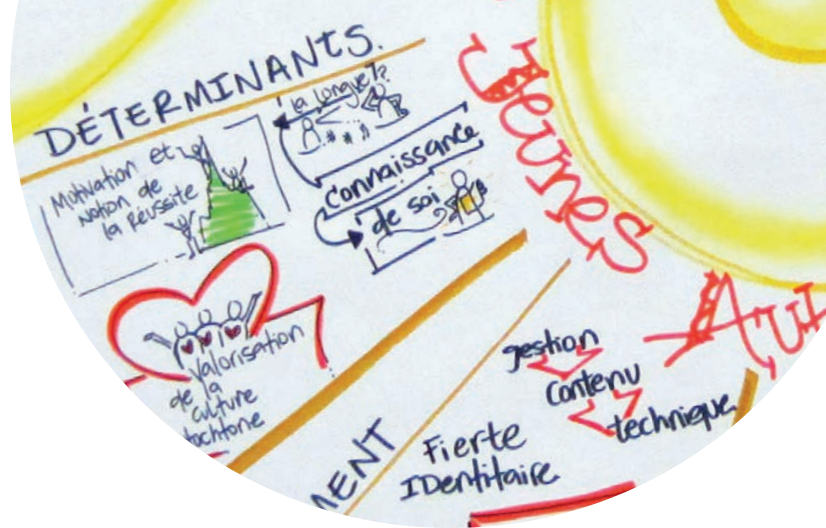 DÉTERMINANTS.
Motivation et
Notion de
la Réussite
la longue!?
Connaissance
de soi
Valorisation
de la
culture
tochtone
Jeunes
Aut
gestion
contenu
technique
Fierte
IDentitaire
MENT